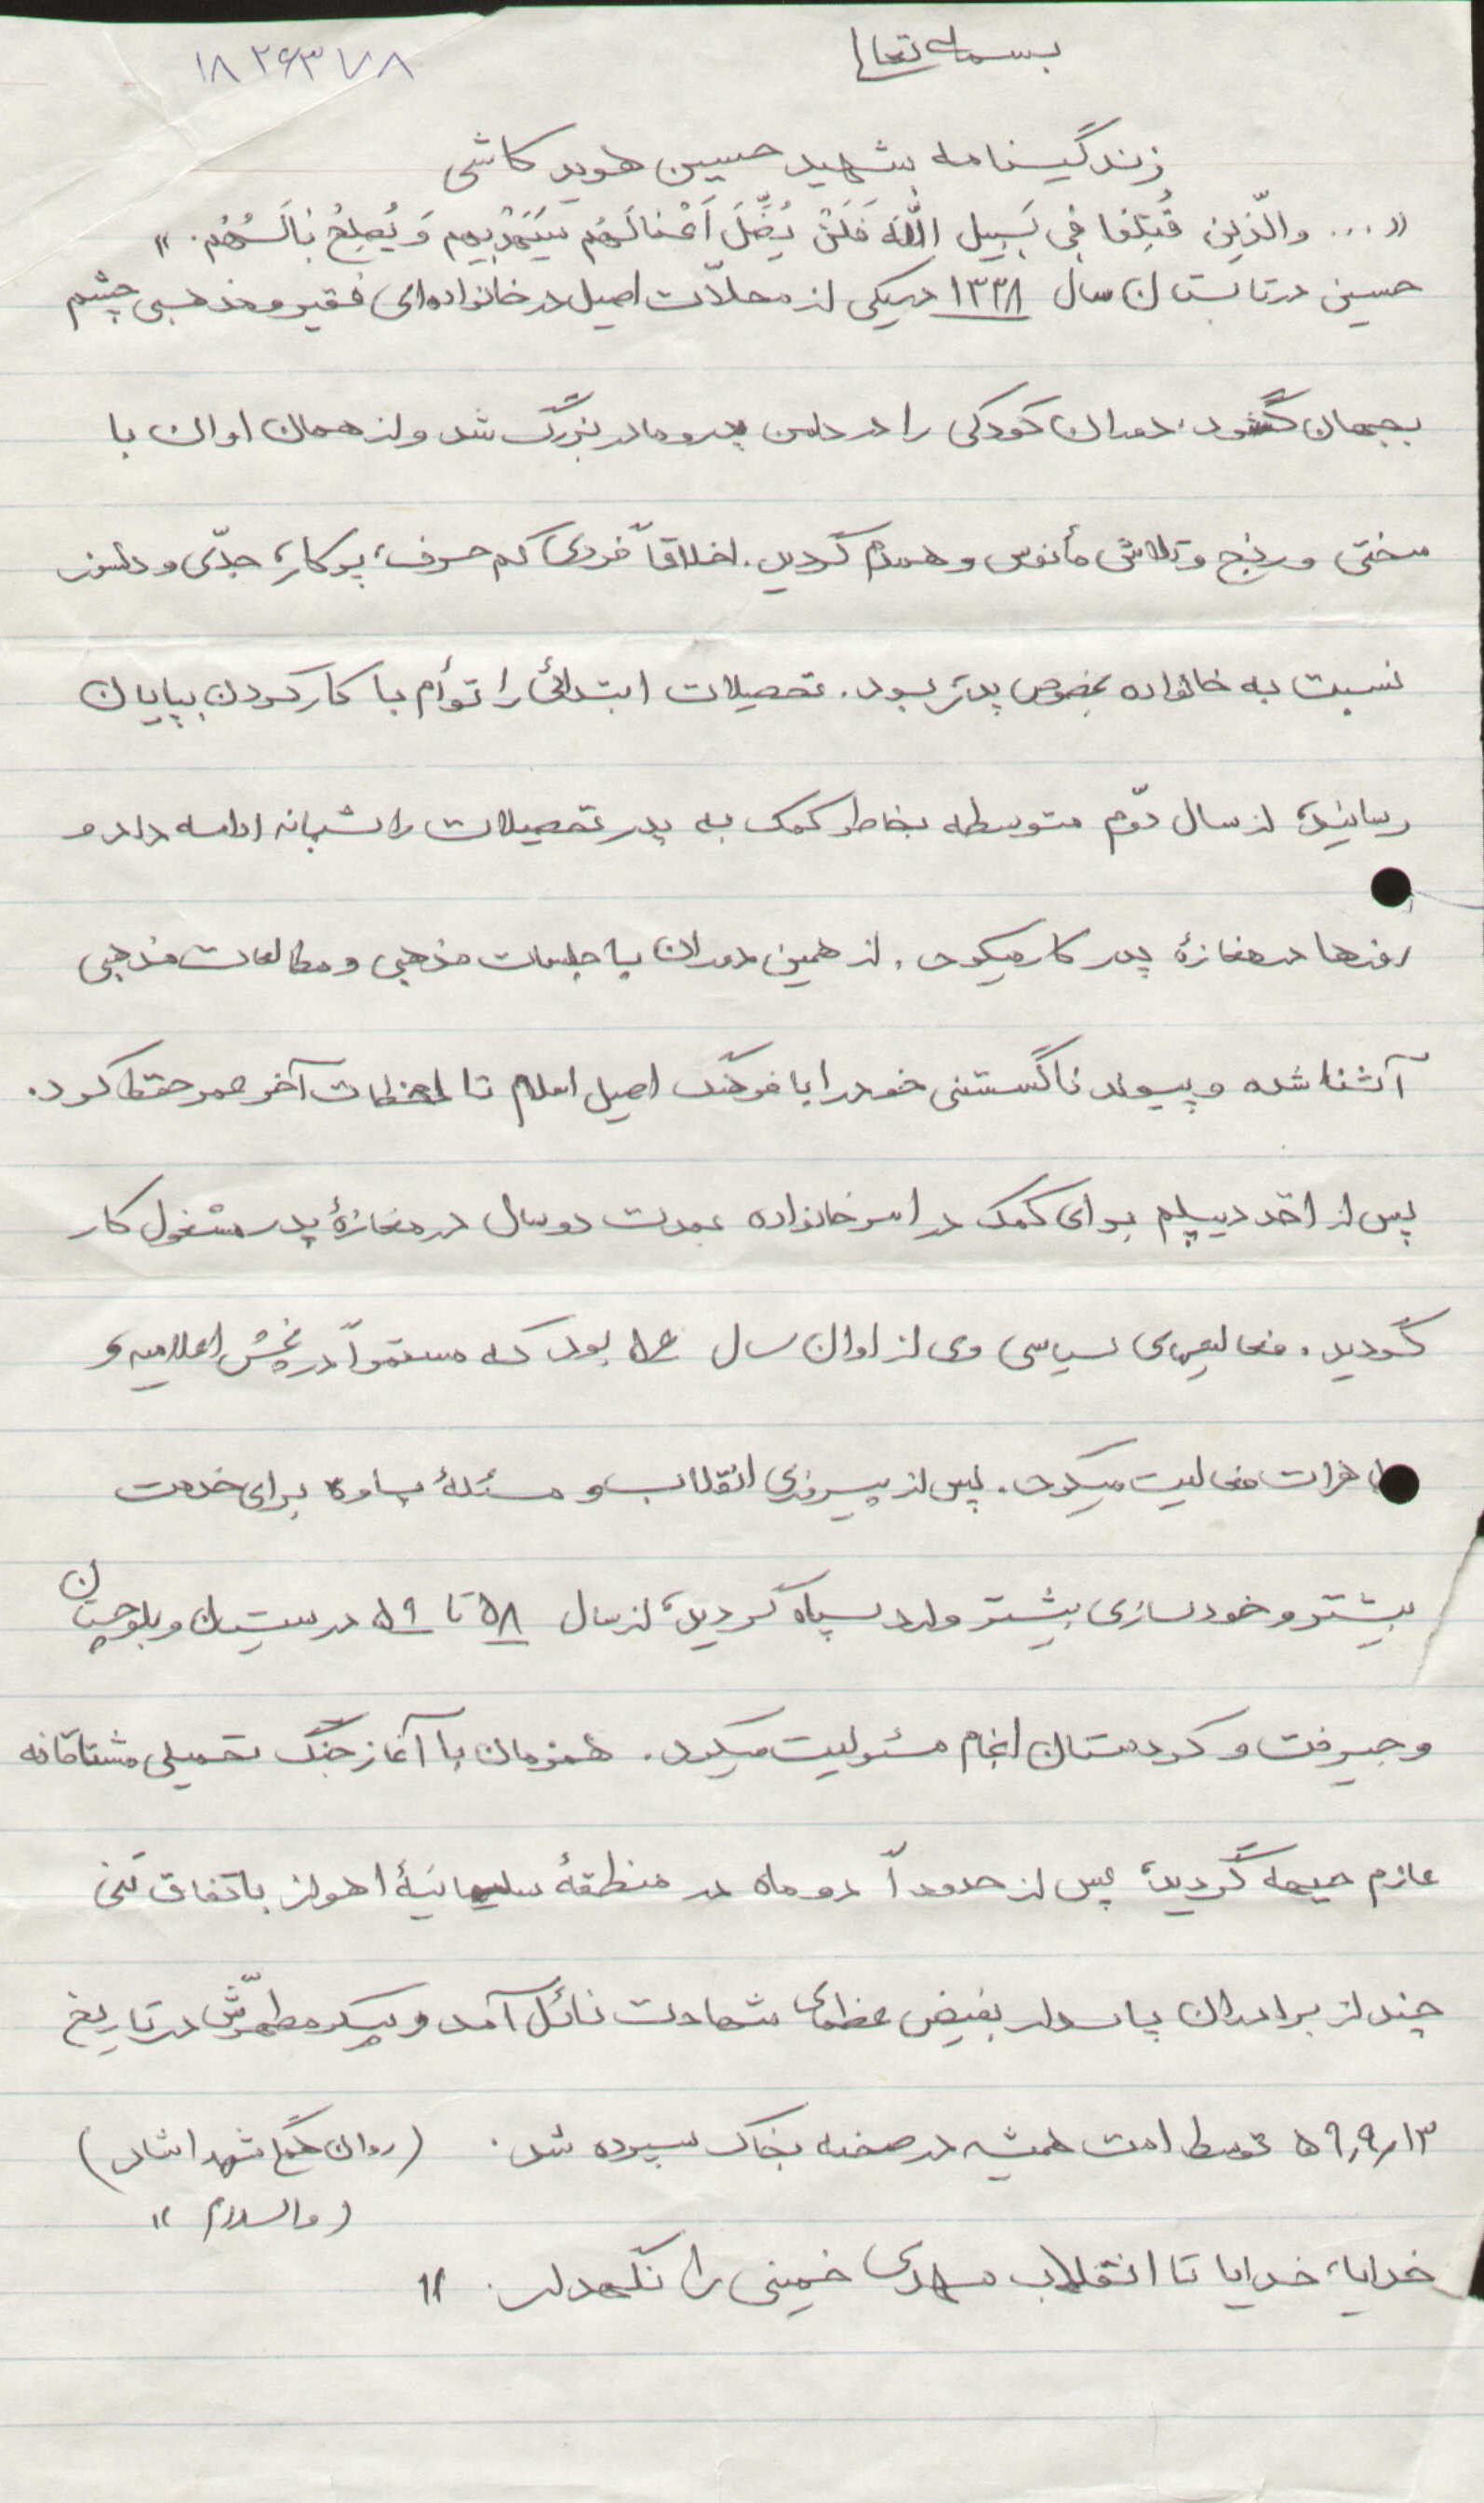 بسمه تعالی
۱۸۲۶۳۷۸
زندگینامه شهید حسین هوید کاشی
«... والّذین قُتِلوا فی سَبیل اللّه فَلَنْ یُضِّلَ اَعْمالَهُم سَیَهْدیهِم وَ یُصلِحُ بٰالَهُم. »
حسین در تابستان سال ۱۳۳۸ در یکی از محلّات اصیل در خانواده‌ای فقیر و مذهبی چشم
بجهان گشود، دوران کودکی را در دامن پدر و مادر بزرگ شد و از همان اوان با
سختی و رنج و تلاش مأنوس و همدم گردید. اخلاقاً فردی کم حرف، پرکار، جدّی و دلسوز
نسبت به خانواده بخصوص پدر بود. تحصیلات ابتدائی را توأم با کار کردن بپایان
رسانید، از سال دوّم متوسطه بخاطر کمک به پدر تحصیلات را شبانه ادامه داد و
روزها در مغازهٔ پدر کار میکرد. از همین دوران با جلسات مذهبی و مطالعات مذهبی
آشنا شده و پیوند ناگسستنی خود را با فرهنگ اصیل اسلام تا لحظات آخر عمر حفظ کرد.
پس از اخذ دیپلم برای کمک در امر خانواده بمدت دو سال در مغازهٔ پدر مشغول کار
گردید. فعالیتهای سیاسی وی از اوان سال ۵۶ بود که مستمراً در پخش اعلامیه و
ظاهرات فعالیت میکرد. پس از پیروزی انقلاب و مسئلهٔ پاوه برای خدمت
بیشتر و خودسازی بیشتر وارد سپاه گردید، از سال ۵۸ تا ۵۹ در سیستان و بلوچستان
و جیرفت و کردستان انجام مسئولیت میکرد. همزمان با آغاز جنگ تحمیلی مشتاقانه
عازم جبهه گردید، پس از حدوداً دو ماه در منطقهٔ سلیمانیهٔ اهواز باتفاق تنی
چند از برادران پاسدار بفیض عظمای شهادت نائل آمد و پیکر مطهرّش در تاریخ
۵۹٫۹٫۱۳ توسط امت همیشه در صحنه بخاک سپرده شد. (روان همگی شهدا شاد)
(والسلام »
خدایا، خدایا تا انقلاب مهدی خمینی را نگهدار. »